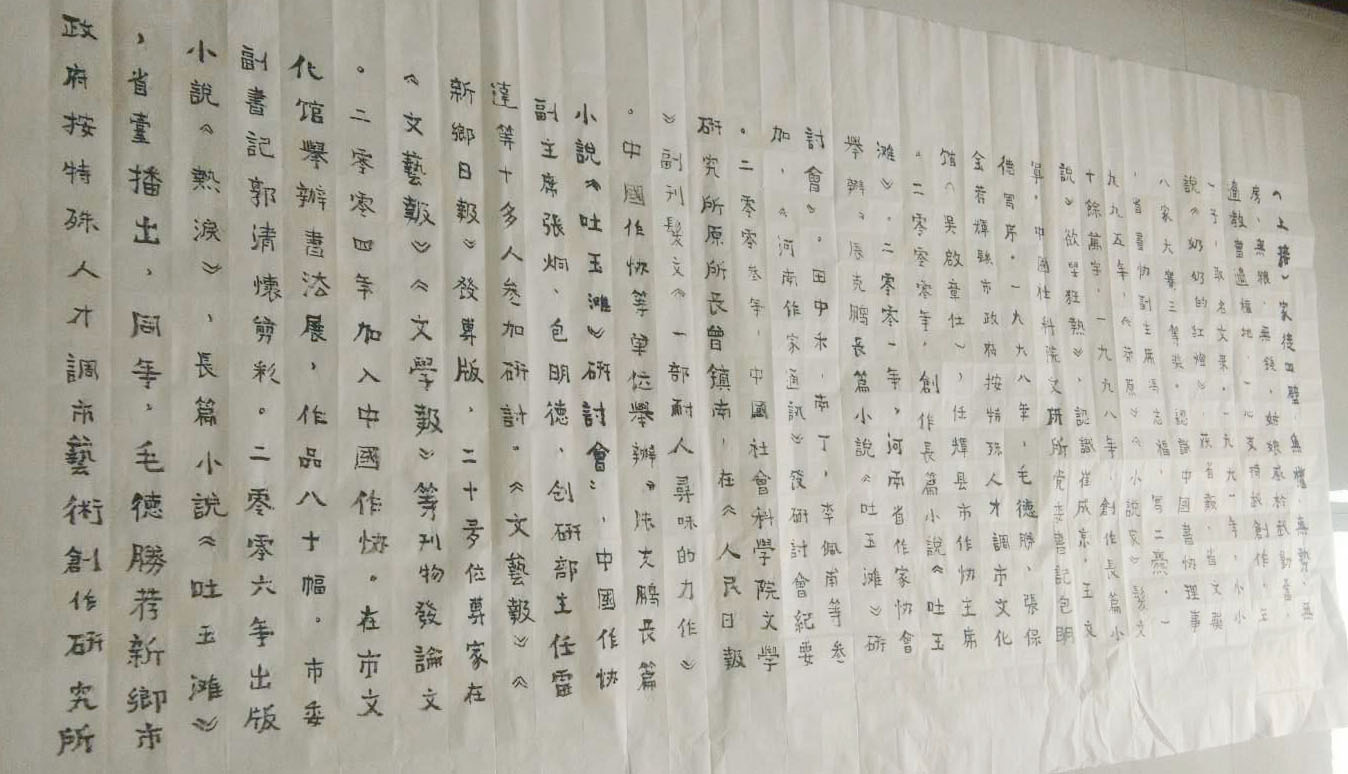 （上接）家徒四壁，無糧，無勢，無
房，無糧，無錢，姑娘
一子，取名文果。一九九
說《奶奶的紅燈》獲省教、省文聯
八家大賽三等奖。認識中國書協理事
，省書協副主席馮志福，写二齋。一
九九五年，《莽原》《小說家》髮文
十餘萬字，一九九八年創作長篇小
說《欲望狂熱》，認識崔成京，王文
軍，中國社科院文研所党委書記包明
德写序。一九九八年，毛德勝、張保
金荐輝縣市政府按特殊人才調市文化
馆（吳啟章仕），任輝县市作协主席
。二零零零年，創作長篇小說《吐玉
滩》，二零零一年，河南省作家协會
舉辦《辰克鵬長篇小說《吐玉滩》研
討會》。田中禾，南丁，李佩甫等叁
加，《河南作家通訊》發研討會紀要
。二零零叁年，中國社會科學院文學
研究所原所長曾鎮南，在《人民日報
》副刊髮文《一部耐人尋味的力作》
。中國作协等單位舉辦《
小說《吐玉滩》研討會：，中國作协
副主席張炯、包明德，创研部主任雷
達等十多人叁加研討。《文藝報》《
新鄉日報》發專版，二十多位專家在
《文藝報》《文學報》等刊物發論文
。二零零四年加入中國作协。在市文
化馆舉辦書法展，作品八十幅。市委
副書記郭清懷剪彩。二零零六年出版
小說《熱淚》，長篇小說《吐玉滩》
，省臺播出，同年，毛德勝荐新鄉市
政府按特殊人才調市藝術創作研究所